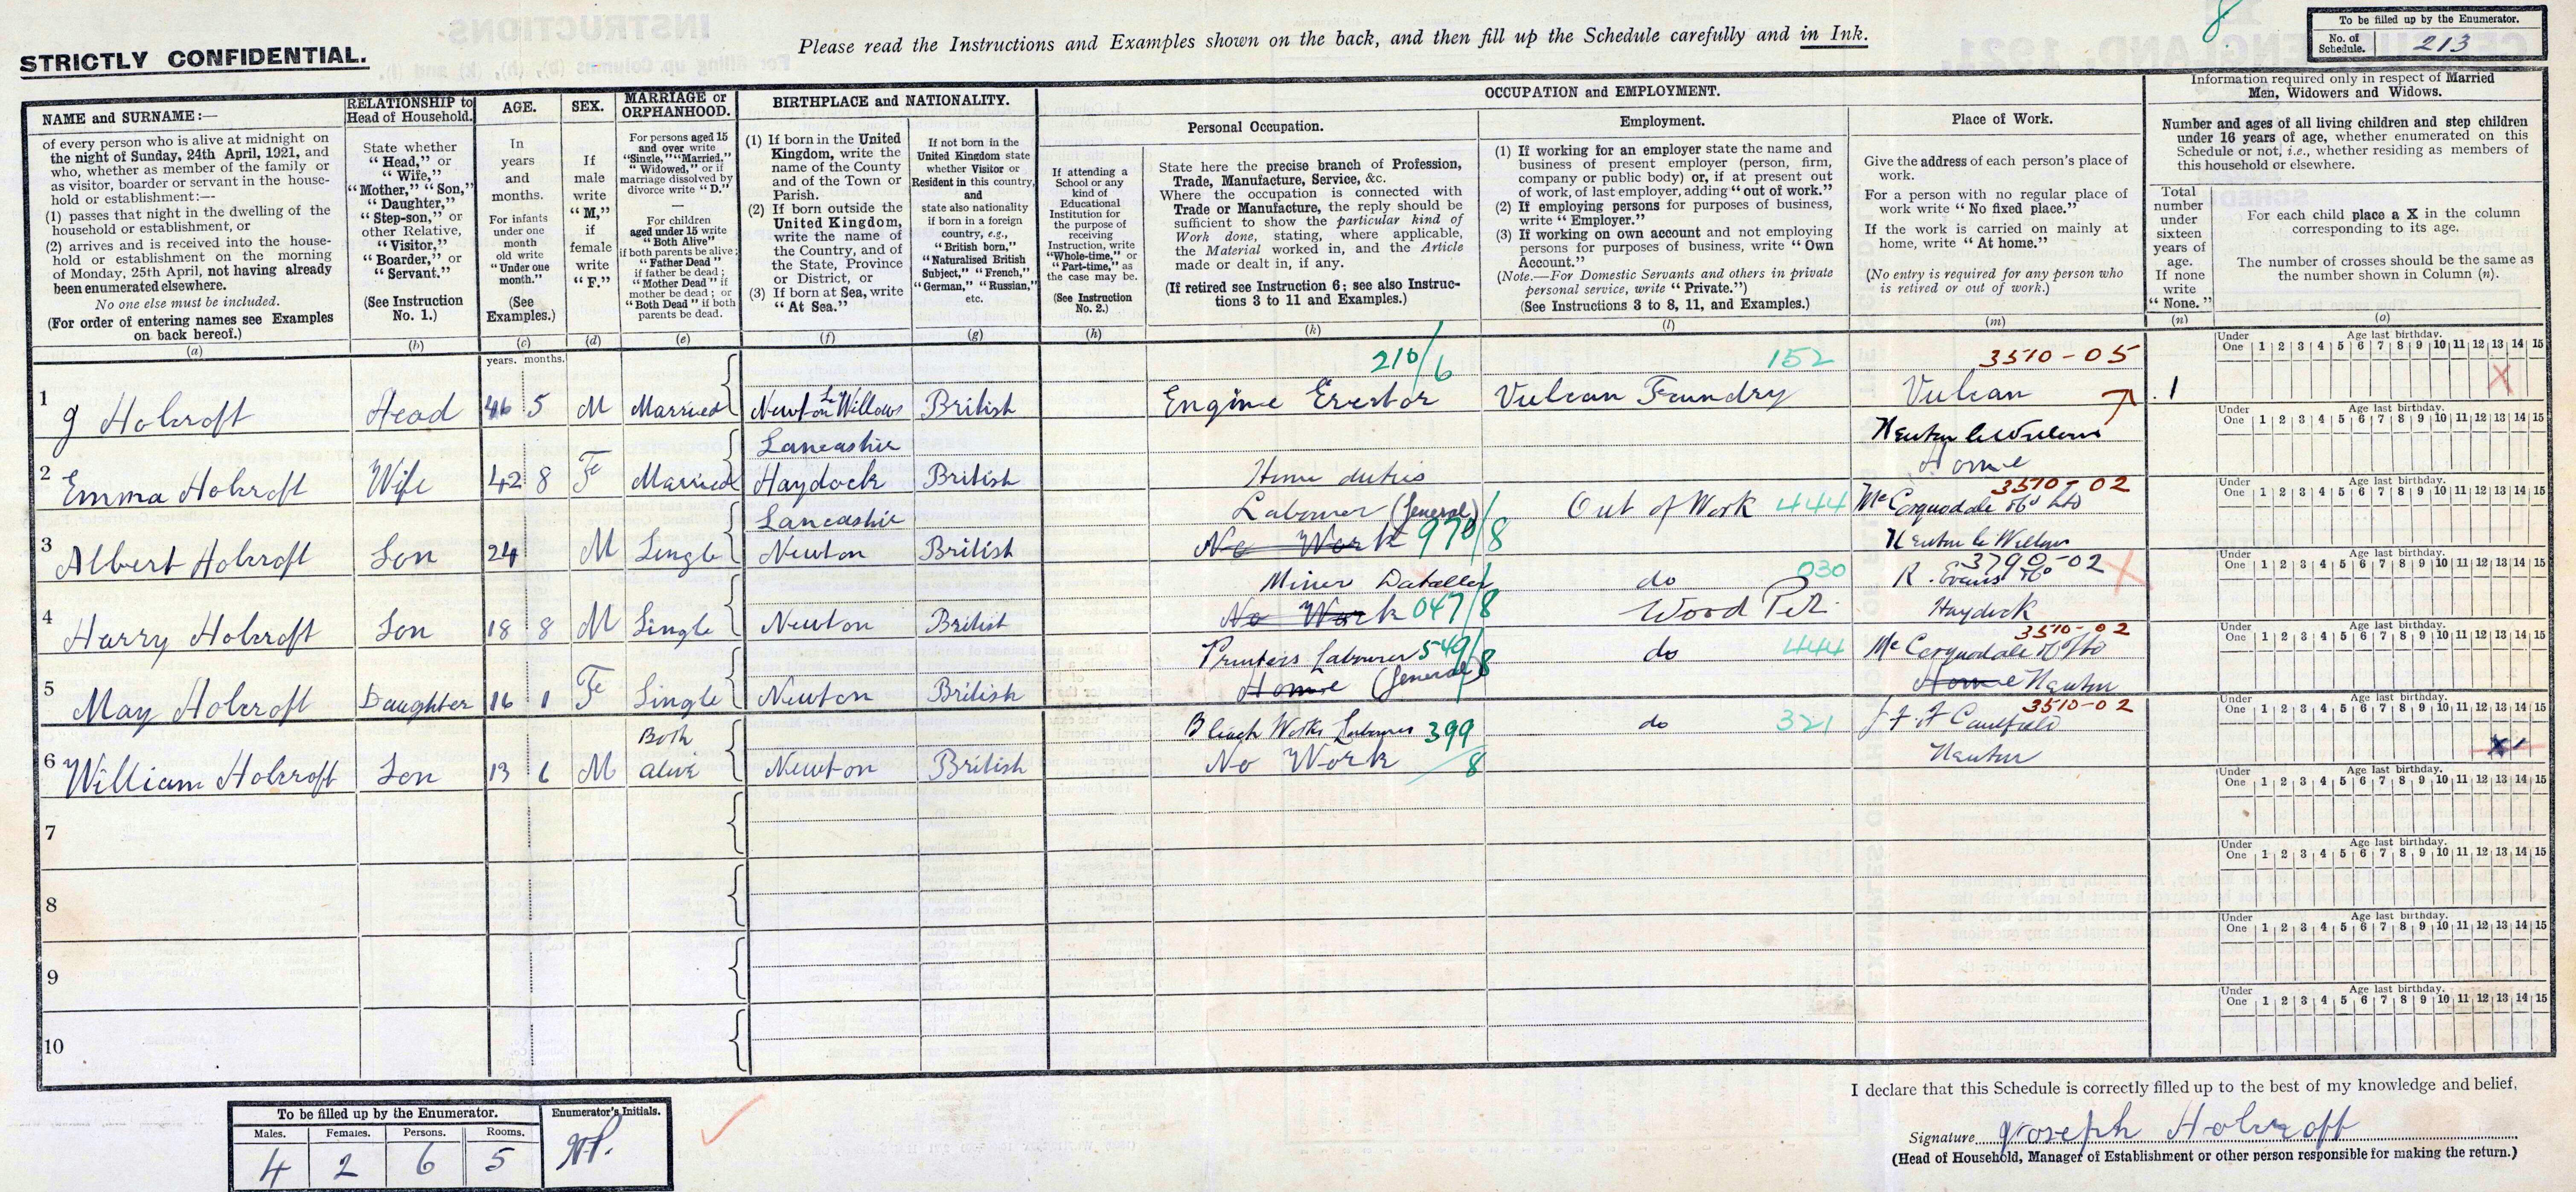 STRICTLY CONFIDENTIAL.
Please read the Instructions and Examples shown on the back, and then fill up the Schedule carefully and in Ink.
8
To be filled up by the Enumerator.
No. of Schedule. 213
NAME and SURNAME:—
of every person who is alive at midnight on
the night of Sunday, 24th April, 1921, and
who, whether as member of the family or
as visitor, boarder or servant in the house-
hold or establishment:—
(1) passes that night in the dwelling of the
household or establishment, or
(2) arrives and is received into the house-
hold or establishment on the morning
of Monday, 25th April, not having already
been enumerated elsewhere.
No one else must be included.
(For order of entering names see Examples
on back hereof.)
(a)
RELATIONSHIP to
Head of Household.
State whether
"Head," or
"Wife,"
"Mother," "Son,"
"Daughter,"
"Step-son," or
other Relative,
"Visitor,"
"Boarder," or
"Servant."
(See Instruction
No. 1.)
(b)
AGE.
In
years
and
months.
For infants
under one
month
old write
"Under one
month."
(See
Examples.)
(c)
SEX.
If
male
write
"M,"
if
female
write
"F."
(d)
MARRIAGE or
ORPHANHOOD.
For persons aged 15
and over write
"Single," "Married,"
"Widowed," or if
marriage dissolved by
divorce write "D."
For children
aged under 15 write
"Both Alive"
if both parents be alive;
"Father Dead" if
father be dead;
"Mother Dead" if
mother be dead; or
"Both Dead" if both
parents be dead.
(e)
BIRTHPLACE and NATIONALITY.
(1) If born in the United
Kingdom, write the
name of the County
and of the Town or
Parish.
(2) If born outside the
United Kingdom,
write the name of
the Country, and of
the State, Province
or District, or
(3) If born at Sea, write
"At Sea."
(f)
If not born in the
United Kingdom state
whether Visitor or
Resident in this country,
and
state also nationality
if born in a foreign
country, e.g.,
"British born,"
"Naturalised British
Subject," "French,"
"German," "Russian,"
etc.
(g)
OCCUPATION and EMPLOYMENT.
If attending a
School or any
kind of
Educational
Institution for
the purpose of
receiving
Instruction, write
"Whole-time," or
"Part-time," as
the case may be.
(See Instruction
No. 2.)
(h)
Personal Occupation.
State here the precise branch of Profession,
Trade, Manufacture, Service, &c.
Where the occupation is connected with
Trade or Manufacture, the reply should be
sufficient to show the particular kind of
Work done, stating, where applicable,
the Material worked in, and the Article
made or dealt in, if any.
(If retired see Instruction 6; see also Instruc-
tions 3 to 11 and Examples.)
(k)
Employment.
(1) If working for an employer state the name and
business of present employer (person, firm,
company or public body) or, if at present out
of work, of last employer, adding "out of work."
(2) If employing persons for purposes of business,
write "Employer."
(3) If working on own account and not employing
persons for purposes of business, write "Own
Account."
(Note.—For Domestic Servants and others in private
personal service, write "Private.")
(See Instructions 3 to 8, 11, and Examples.)
(l)
Place of Work.
Give the address of each person's place of
work.
For a person with no regular place of
work write "No fixed place."
If the work is carried on mainly at
home, write "At home."
(No entry is required for any person who
is retired or out of work.)
(m)
Information required only in respect of Married
Men, Widowers and Widows.
Number and ages of all living children and step children
under 16 years of age, whether enumerated on this
Schedule or not, i.e., whether residing as members of
this household or elsewhere.
Total
number
under
sixteen
years of
age.
If none
write
"None."
(n)
For each child place a X in the column
corresponding to its age.
The number of crosses should be the same as
the number shown in Column (n).
(o)
years. months.
Under One Age last birthday. 1 2 3 4 5 6 7 8 9 10 11 12 13 14 15
210/6 152 3510-05
1 J Holcroft Head 46 5 M Married Newton Le Willows British Engine Erector Vulcan Foundry Vulcan 1 X
Newton le Willows
Under One Age last birthday. 1 2 3 4 5 6 7 8 9 10 11 12 13 14 15
Lancashire
2 Emma Holcroft Wife 42 8 F Married Haydock British Home duties Home
Under One Age last birthday. 1 2 3 4 5 6 7 8 9 10 11 12 13 14 15
3510-02
Lancashire Labourer (General) Out of Work 444 McCorquodale & Co Ltd
3 Albert Holcroft Son 24 M Single Newton British No Work 970/8 Newton le Willows
Under One Age last birthday. 1 2 3 4 5 6 7 8 9 10 11 12 13 14 15
Miner Dataller do 030 R. Evans & Co 3790-02 X
4 Harry Holcroft Son 18 8 M Single Newton British No Work 047/8 Wood Pit Haydock
Under One Age last birthday. 1 2 3 4 5 6 7 8 9 10 11 12 13 14 15
3510-02
Printers Labourer 549/8 do 444 McCorquodale & Co Ltd
5 May Holcroft Daughter 16 1 F Single Newton British Home (General) Home Newton
Under One Age last birthday. 1 2 3 4 5 6 7 8 9 10 11 12 13 14 15
3510-02
Both Bleach Works Labourer 399 do 321 J. F Caulfield
6 William Holcroft Son 13 6 M Alive Newton British No Work /8 Newton X
Under One Age last birthday. 1 2 3 4 5 6 7 8 9 10 11 12 13 14 15
7
Under One Age last birthday. 1 2 3 4 5 6 7 8 9 10 11 12 13 14 15
8
Under One Age last birthday. 1 2 3 4 5 6 7 8 9 10 11 12 13 14 15
9
Under One Age last birthday. 1 2 3 4 5 6 7 8 9 10 11 12 13 14 15
10
I declare that this Schedule is correctly filled up to the best of my knowledge and belief.
Signature Joseph Holcroft
(Head of Household, Manager of Establishment or other person responsible for making the return.)
To be filled up by the Enumerator.
Males. Females. Persons. Rooms.
4 2 6 5
Enumerator's Initials.